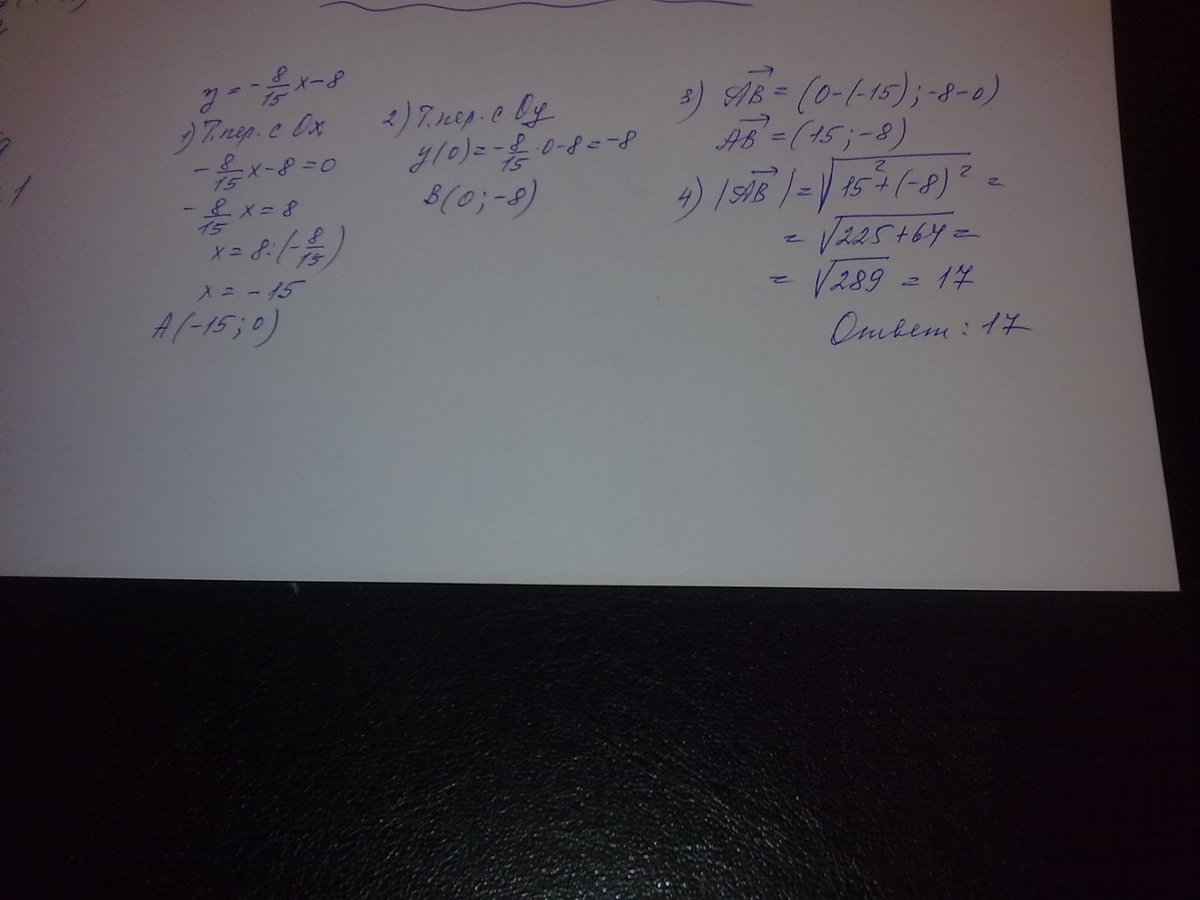 y = -8/15 x - 8
1) Т.пер. с Ox
-8/15 x - 8 = 0
-8/15 x = 8
x = 8 : (-8/15)
x = -15
A(-15; 0)
2) Т.пер. с Oy
y(0) = -8/15 · 0 - 8 = -8
B(0; -8)
3) AB⃗ = (0-(-15); -8-0)
AB⃗ = (15; -8)
4) |AB⃗| = √(15² + (-8)²) =
= √(225+64) =
= √289 = 17
Ответ: 17
1